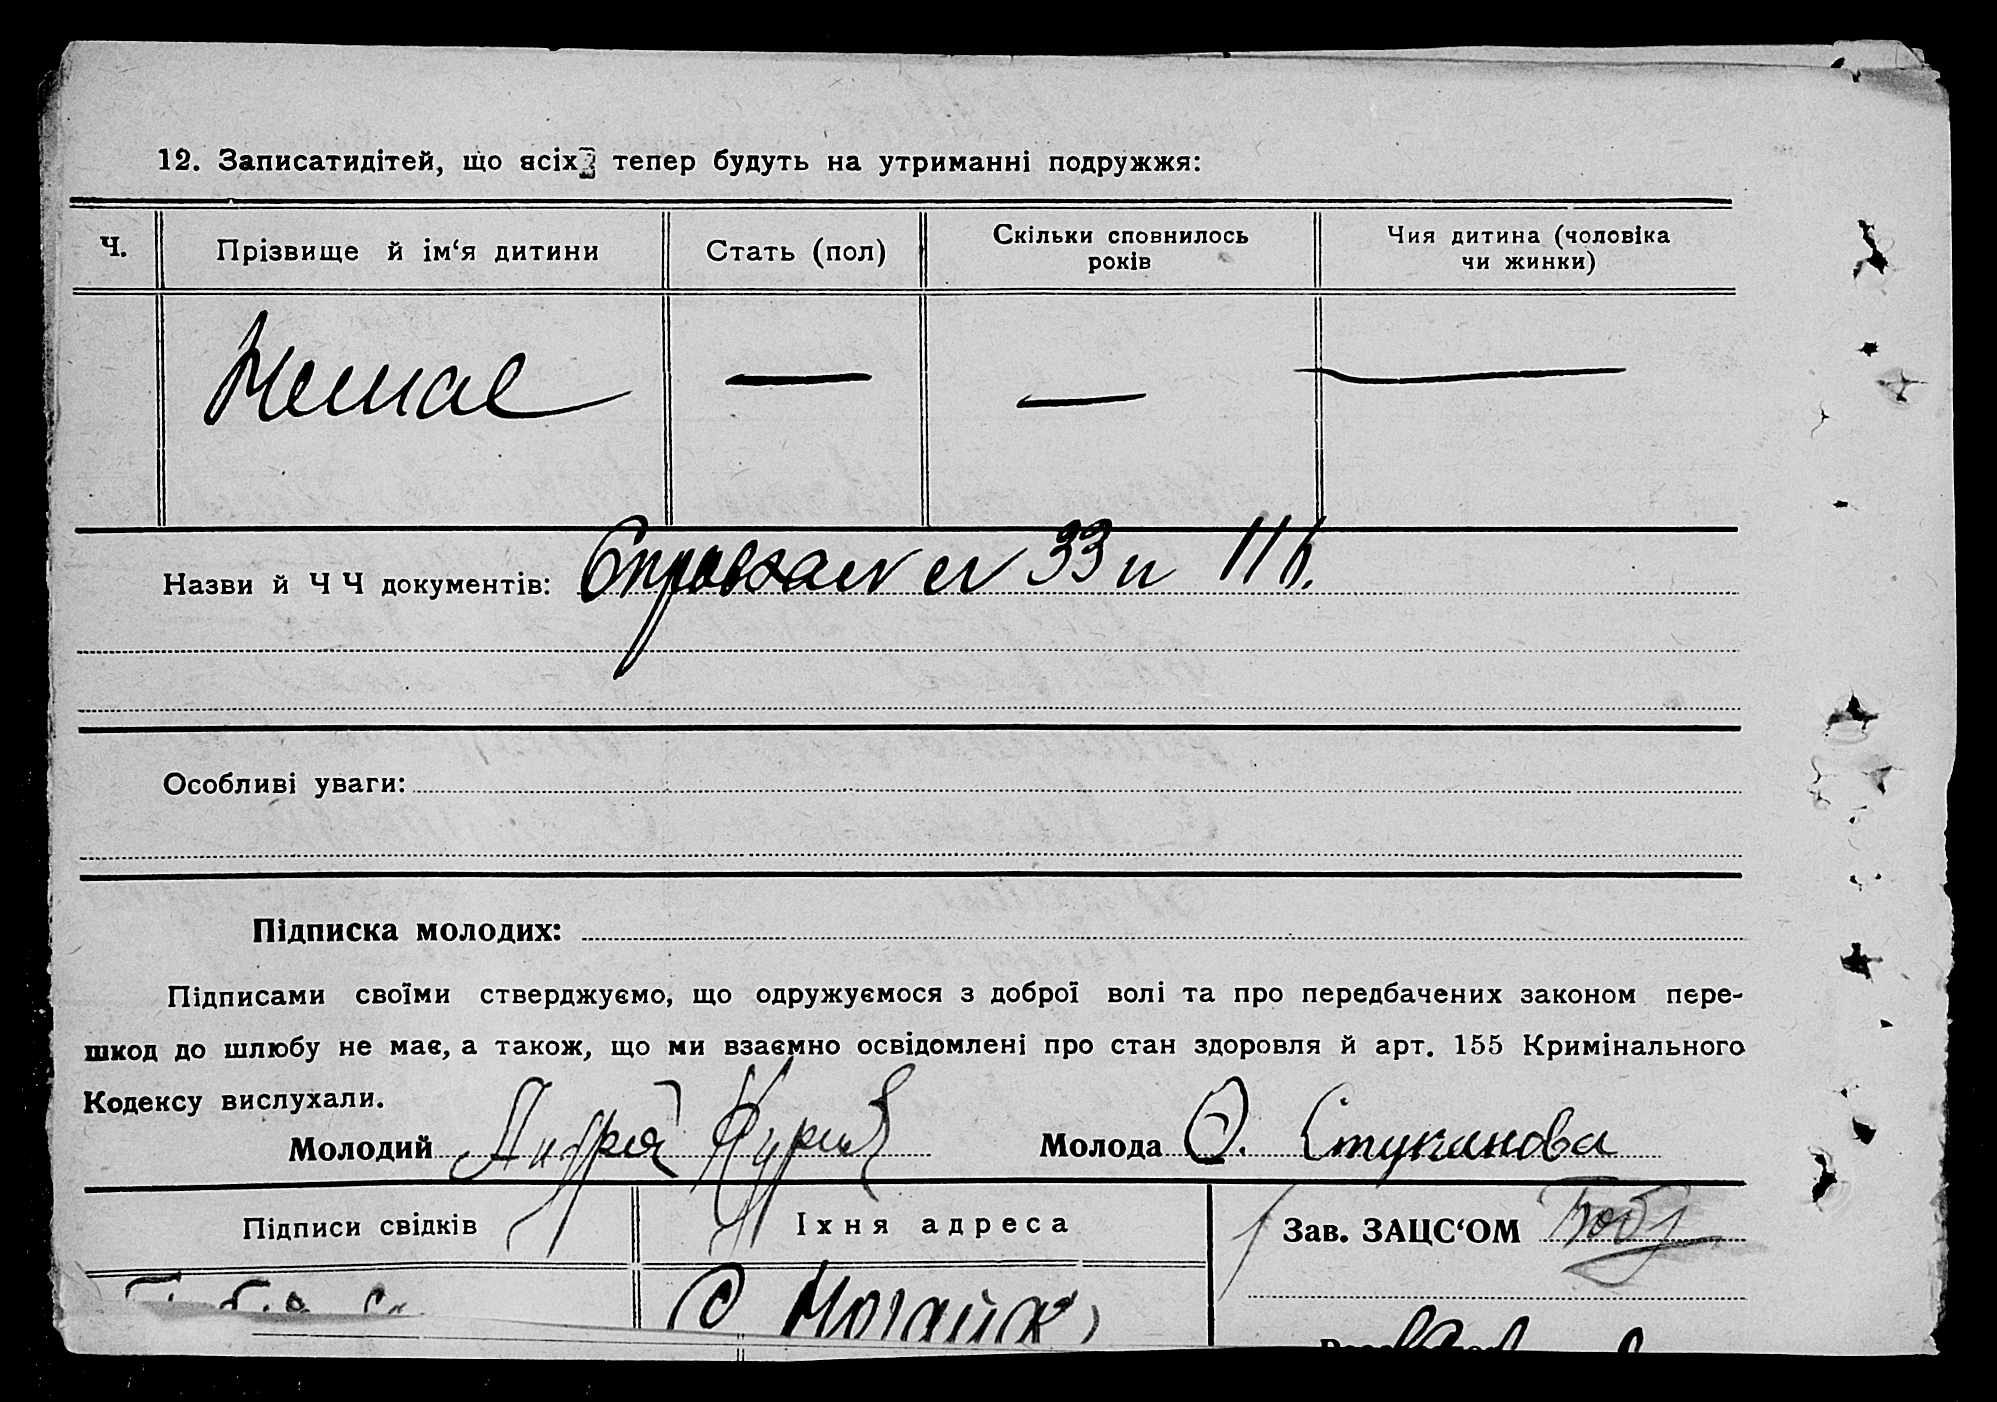 12. Записатидітей, що всіх тепер будуть на утриманні подружжя:
Ч. Прізвище й ім‘я дитини Стать (пол) Скільки сповнилось років Чия дитина (чоловіка чи жинки)
Немає — — —
Назви й Ч Ч документів: Справкаси 33 и 116.
Особливі уваги:
Підписка молодих:
Підписами своїми стверджуємо, що одружуємося з доброї волі та про передбачених законом пере-
шкод до шлюбу не має, а також, що ми взаємно освідомлені про стан здоровля й арт. 155 Кримінального
Кодексу вислухали.
Молодий Андрей Молода О. Стуканова
Підписи свідків Їхня адреса Зав. ЗАЦС‘ОМ
С